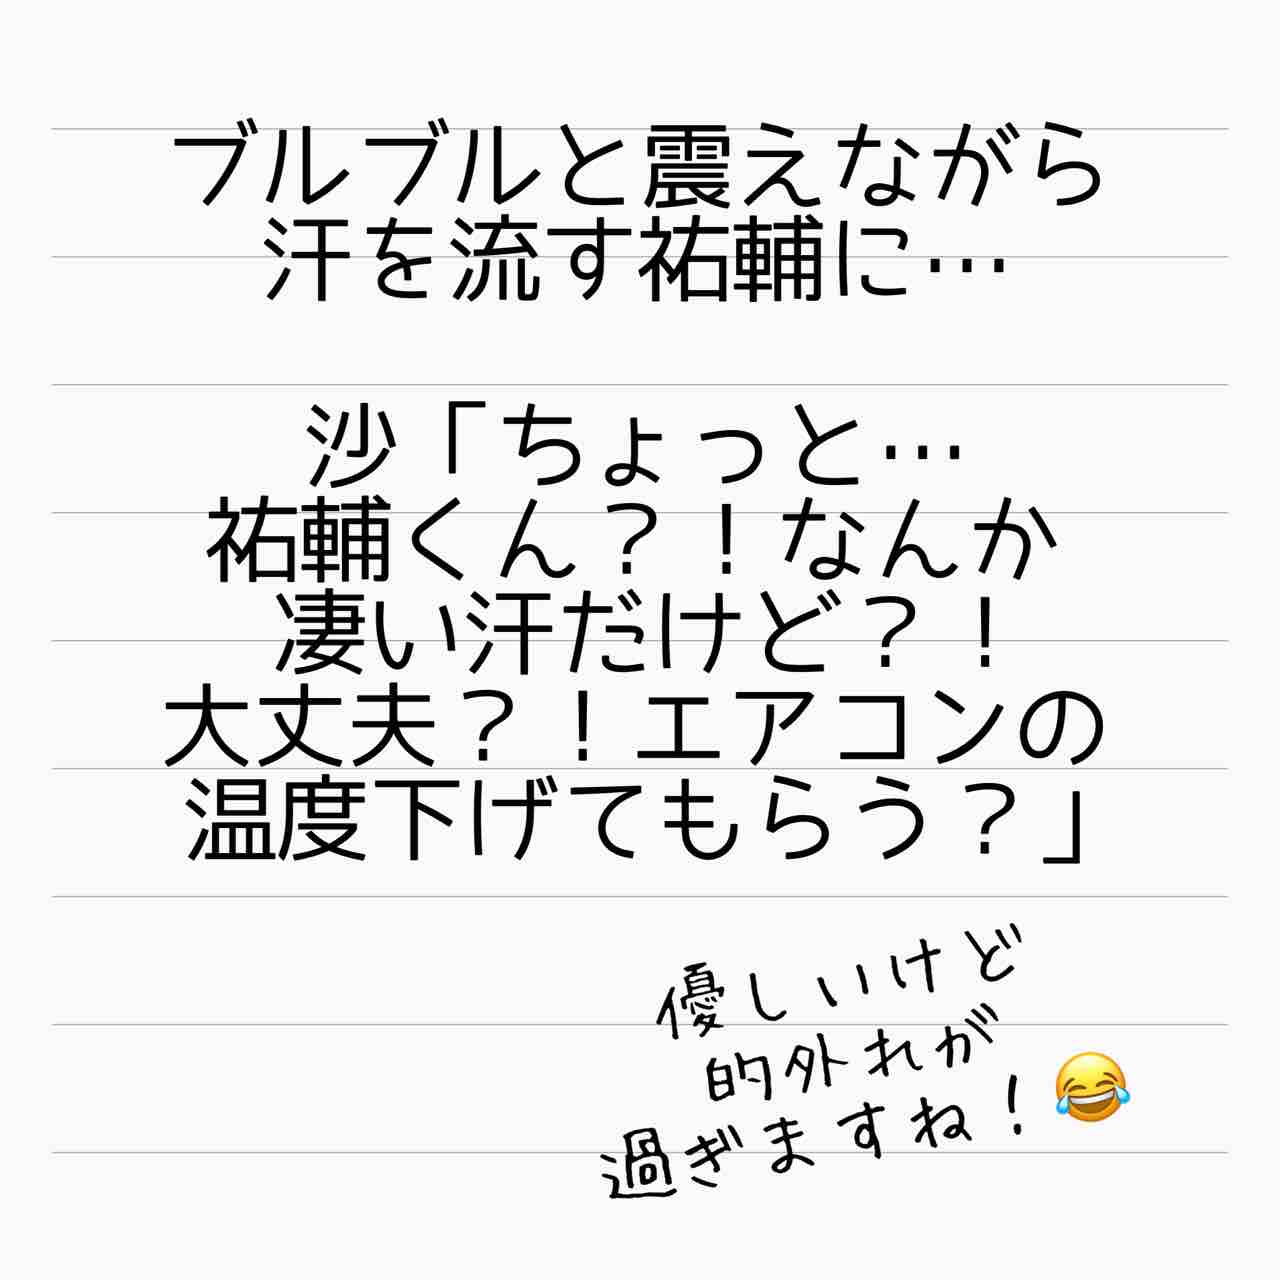 ブルブルと震えながら
汗を流す祐輔に…
沙「ちょっと…
祐輔くん？！なんか
凄い汗だけど？！
大丈夫？！エアコンの
温度下げてもらう？」
優しいけど
的外れが
過ぎますね！😂